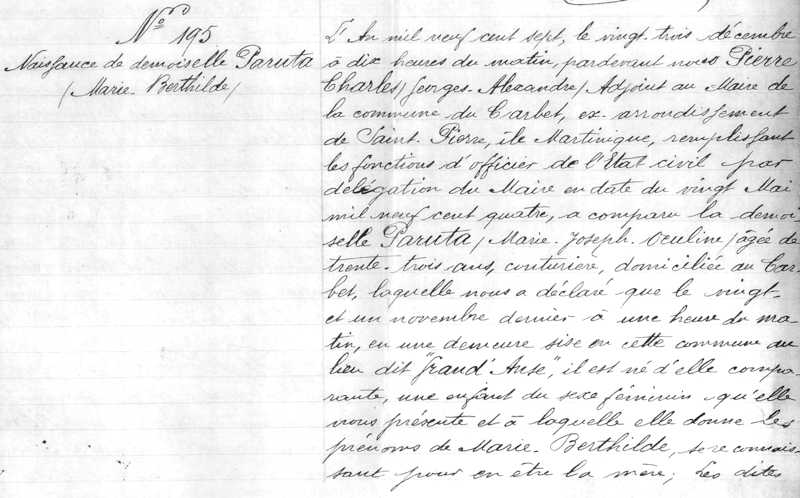 N.ro 195
Naissance de demoiselle Paruta
(Marie-Berthilde)
L'An mil neuf cent sept, le vingt-trois décembre
à dix heures du matin, pardevant nous Pierre
Charles (Georges-Alexandre) Adjoint au Maire de
la commune du Carbet, ex-arrondissement
de Saint-Pierre, île Martinique, remplissant
les fonctions d'officier de l'Etat civil par
délégation du Maire en date du vingt Mai
mil neuf cent quatre, a comparu la demoi
selle Paruta (Marie-Joseph-Oculine) âgée de
trente-trois ans, couturière, domiciliée au Car
bet, laquelle nous a déclaré que le vingt-
et un novembre dernier à une heure du ma-
tin, en une demeure sise en cette commune au
lieu dit "Grand'Anse", il est né d'elle compa-
rante, une enfant du sexe féminin qu'elle
nous présente et à laquelle elle donne les
prénoms de Marie-Berthilde, se reconnais-
sant pour en être la mère; Les dites